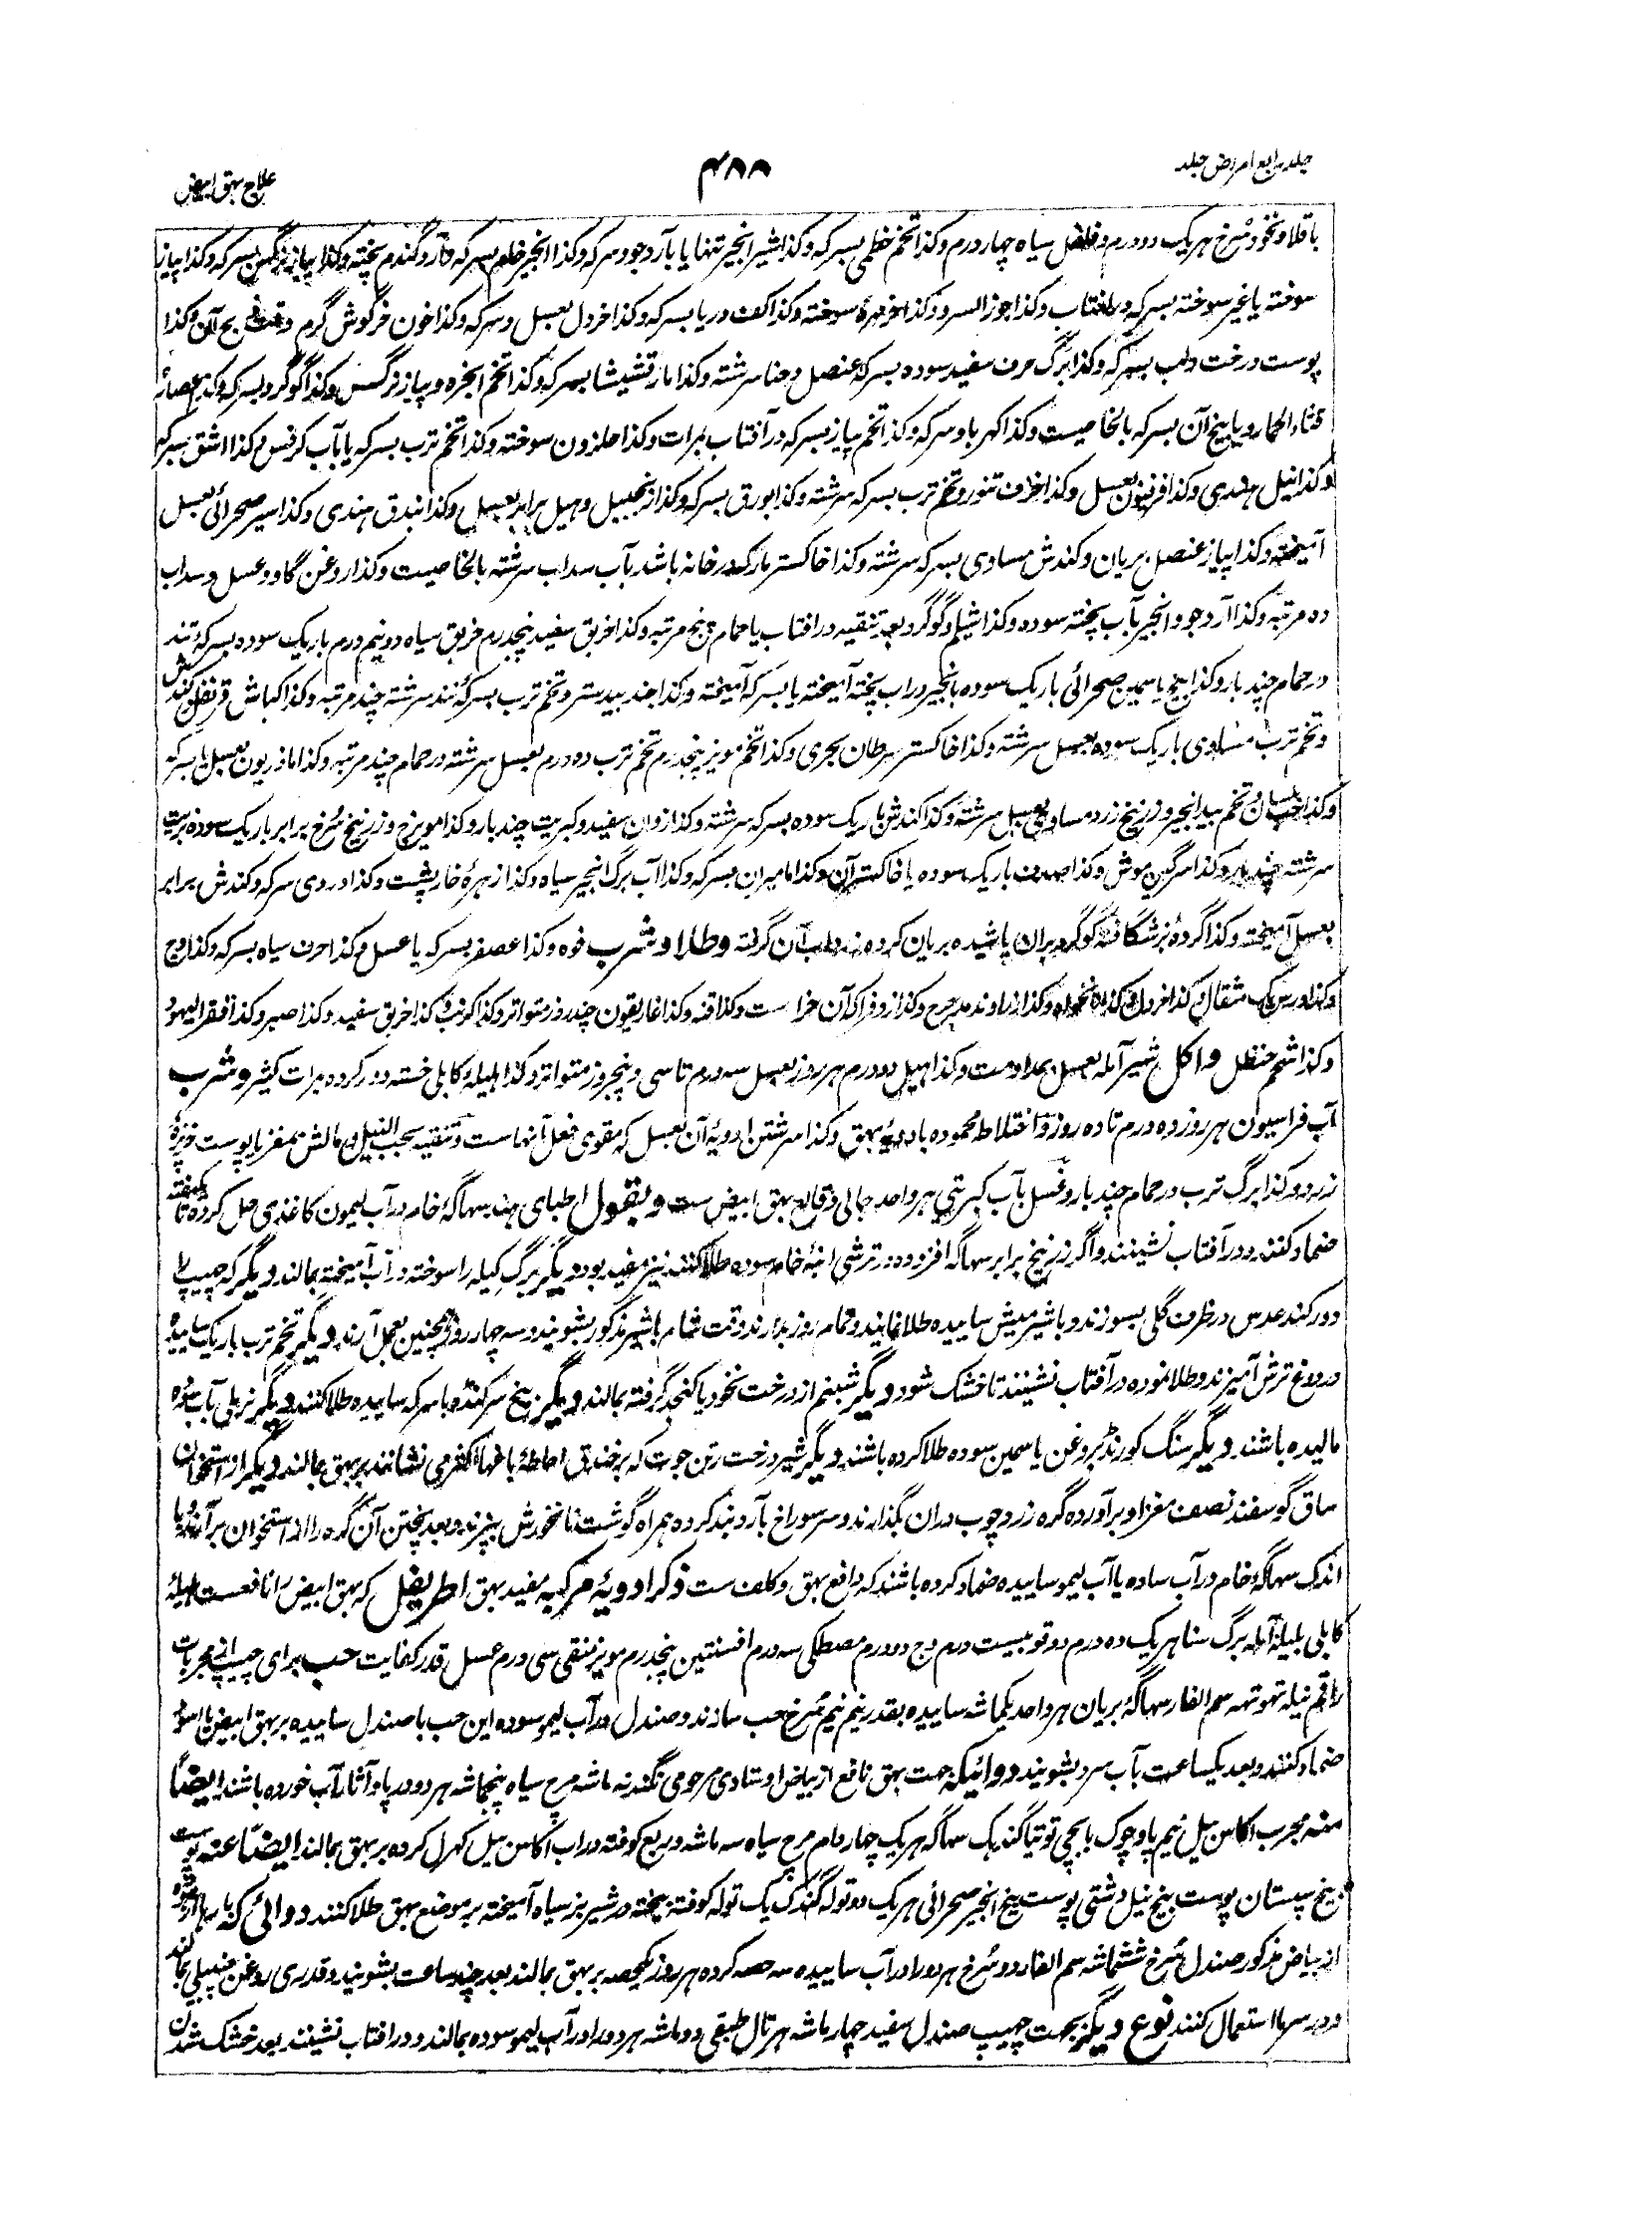 جلد رابع امراض جلد
۴۸۸
علاج بهق ابیض
باقلا و نخود سرخ هریک دو درم و فلفل سیاه چهار درم وکذا تخم خطمی بسرکه وکذا شیر انجیر تنها یا بآرد جو و سرکه وکذا انجیر خام بسرکه و آرد گندم پخته وکذا پیاز نرگس بسرکه وکذا پیاز
سوخته یا غیر سوخته بسرکه در آفتاب وکذا جوز السرو وکذا خرمهرهٔ سوخته وکذا کف دریا بسرکه وکذا خردل بعسل و سرکه وکذا خون خرگوش گرم وقت ذبح آن وکذا
پوست درخت دلب بسرکه وکذا برگ حرف سفید سوده بسرکهٔ عنصل و حنا سرشته وکذا مارقشیشا بسرکه وکذا تخم انجره و پیاز نرگس وکذا گوگرد بسرکه وکذا عصارهٔ
قثاء الحمار و یا بیخ آن بسرکه بالخاصیت وکذا کهربا و سرکه وکذا تخم پیاز بسرکه در آفتاب بمرات وکذا حلزون سوخته وکذا تخم ترب بسرکه یا بآب کرفس وکذا اشق بسرکه
وکذا نیل هندی وکذا فرفیون بعسل وکذا خزف تنور و تخم ترب بسرکه سرشته وکذا بورق بسرکه وکذا زنجبیل و هیل برابر بعسل وکذا بندق هندی وکذا سیر صحرائی بعسل
آمیخته وکذا پیاز عنصل بریان و کندش مساوی بسرکه سرشته وکذا خاکستر مار که در خانه باشد بآب سداب سرشته بالخاصیت وکذا روغن گاو و عسل و سداب
ده مرتبه وکذا آرد جو و انجیر بآب پخته سوده وکذا شیلم و گوگرد بعد تنقیه در آفتاب یا حمام پنج مرتبه وکذا خربق سفید پنجدرم خربق سیاه دو نیم درم باریک سوده بسرکهٔ تند
در حمام چند بار وکذا بیخ یاسمین صحرائی باریک سوده بانجیر در آب پخته آمیخته یا بسرکه آمیخته وکذا جندبیدستر و تخم ترب بسرکهٔ تند سرشته چند مرتبه وکذا کباش قرنفل کندش
و تخم ترب مساوی باریک سوده بعسل سرشته وکذا خاکستر سرطان بحری وکذا تخم مویز پنجدرم تخم ترب ده درم بعسل سرشته در حمام چند مرتبه وکذا مازریون بعسل یا بسرکه
وکذا حب بلسان و تخم بیدانجیر و زرنیخ زرد مساوی بعسل سرشته وکذا کندش باریک سوده بسرکه سرشته وکذا زوان سفید و کبریت چند بار وکذا مویزج و زرنیخ سرخ برابر باریک سوده بزیت
سرشته چند بار وکذا سرگین موش وکذا صدف باریک سوده یا خاکستر آن وکذا مامیران بسرکه وکذا آب برگ انجیر سیاه وکذا زهرهٔ خارپشت وکذا دردی سرکه و کندش برابر
بعسل آمیخته وکذا گردهٔ بز شگافته گوگرد بران پاشیده بریان کرده زرداب آن گرفته وطلا و شرب فوه وکذا عصفر بسرکه یا عسل وکذا حرف سیاه بسرکه وکذا وج
وکذا ورس یک مثقال وکذا خردل وکذا نانخواه وکذا زراوند مدحرج وکذا زوفرا که آن حزا ست وکذا قنه وکذا غاریقون چند روز متواتر وکذا کرنب وکذا خربق سفید وکذا صبر وکذا قفر الیهود
وکذا شحم حنظل واکل شیر آمله بعسل بمداومت وکذا هیل دو درم هر روز بعسل سه درم تا سی و پنجروز متواتر وکذا هلیلهٔ کابلی خسته دور کرده بمرات کثیر وشرب
آب فراسیون هر روز ده درم تا ده روز و اختلاط محموده بادویهٔ بهق وکذا سرشتن ادویهٔ آن بعسل که مقوی فعل آنهاست و تنقیه بحب النیل و مالش بمغز یا پوست خربزه
زرد وکذا برگ ترب در حمام چند بار و غسل بآب کبریتی هر واحد جالی و قالع بهق ابیض ست وبقول اطبای هند سهاگهٔ خام در آب لیمون کاغذی حل کرده تا یکهفته
ضماد کنند و در آفتاب نشینند و اگر زرنیخ برابر سهاگه افزوده در ترشی انبهٔ خام سوده طلا کنند نیز مفید بود دیگر برگ کیله را سوخته در آب آمیخته بمالند دیگر که چیپ را
دور کند عدس در ظرف گلی بسوزند و باشیر میش ساییده طلا نمایند و تمام روز بدارند وقت شام باشیر مذکور بشویند و سه چهار روز همچنین بعمل آرند دیگر تخم ترب باریک ساییده
در دوغ ترش آمیزند و طلا نموده در آفتاب نشینند تا خشک شود دیگر شبنم از درخت نخود یا کنجد گرفته بمالند دیگر بیخ سرکنڈه با سرکه ساییده طلا کنند دیگر نربلی بآب سوده
مالیده باشند دیگر سنگ کورنڈ بروغن یاسمین سوده طلا کرده باشند دیگر شیر درخت رتن جوت که بر خندق احاطهٔ باغها اکثر می نشانند بر بهق بمالند دیگر از استخوان
ساق گوسفند نصف مغز او برآورده گره زرد چوب دران بگذارند و سر سوراخ بآرد بند کرده همراه گوشت نانخورش بپزند و بعد پختن آن گره را از استخوان برآرند با
اندک سهاگهٔ خام در آب ساده یا آب لیمو ساییده ضماد کرده باشند که دافع بهق و کلف ست ذکر ادویهٔ مرکبه مفید بهق اطریفل که بهق ابیض را نافعست هلیلهٔ
کابلی بلیله آمله برگ سنا هریک ده درم دوقو بیست درم وج دو درم مصطکی سه درم افسنتین پنجدرم مویز منقی سی درم عسل قدر کفایت حب برای چیپ از مجربات
راقم نیله تهوتهه سم الفار سهاگهٔ بریان هر واحد یکماشه ساییده بقدر نیم نیم سرخ حب سازند و صندل در آب لیمو سوده این حب با صندل ساییده بر بهق ابیض یا اسود
ضماد کنند و بعد یکساعت بآب سرد بشویند دوائیکه جهت بهق نافع از بیاض اوستادی مرحومی گند نه ماشه مرچ سیاه پنجماشه هر دو در پاو آثار آب خورده باشند ایضاً
منه مجرب اکاس بیل نیم پاو چوک بابچی توتیا گندهک سهاگه هریک چهار دام مرچ سیاه سه ماشه و ربع کوفته در آب اکاس بیل کهرل کرده بر بهق بمالند ایضاً عنه پوست
بیخ سپستان پوست بیخ نیل دشتی پوست بیخ انجیر صحرائی هریک دو توله گندهک یک توله کوفته بیخته در شیر بز سیاه آمیخته بر موضع بهق طلا کنند دوائی که
از بیاض مذکور صندل سرخ ششماشه سم الفار دو سرخ هر دو را در آب ساییده سه حصه کرده هر روز یکحصه بر بهق بمالند بعد چند ساعت بشویند و قدری روغن چنبیلی بمالند
و در سرما استعمال کنند نوع دیگر بجهت چیپ صندل سفید چهار ماشه هرتال طبقی دو ماشه هر دو را در آب لیمو سوده بمالند و در آفتاب نشینند بعد خشک شدن